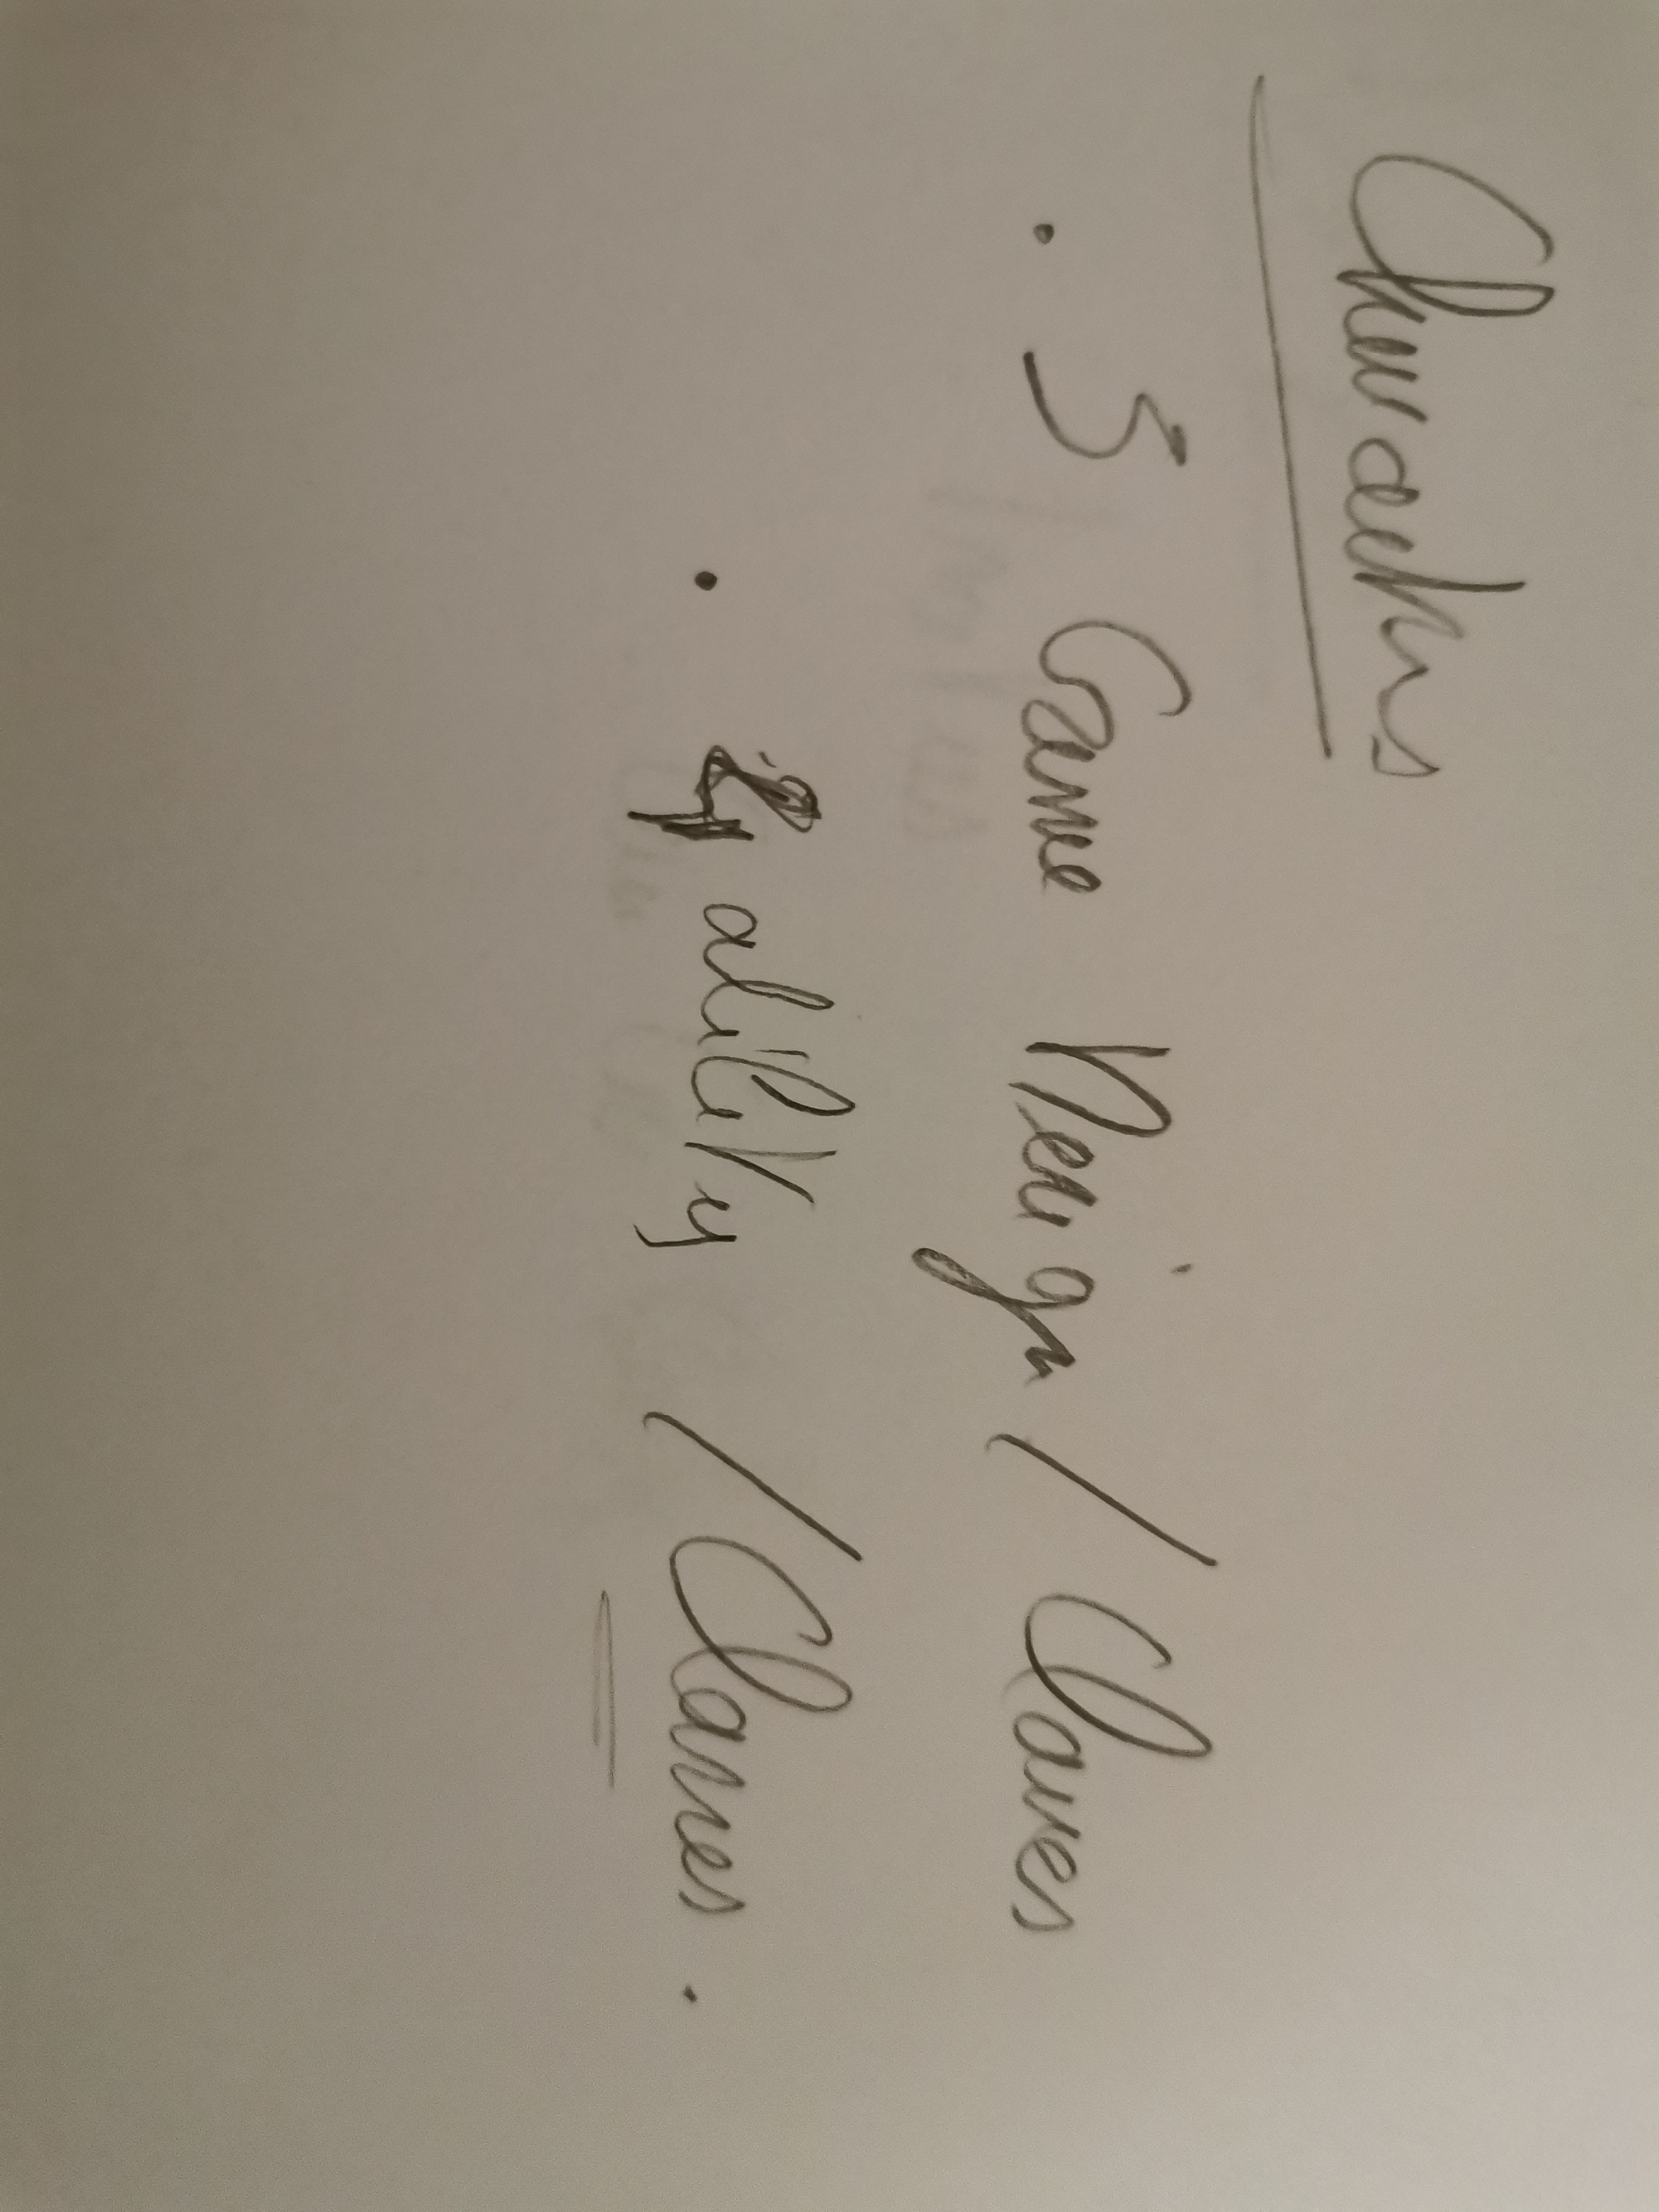 Characters
• 5 Game Design / Classes
• ability / Classes.